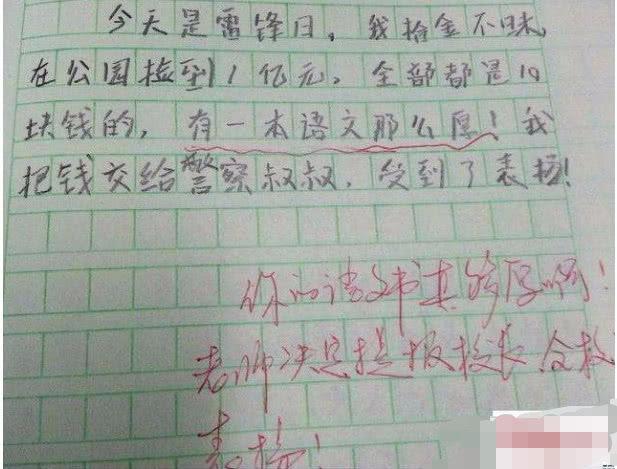 今天是雷锋日,我拾金不昧,
在公园捡到1亿元,全部都是10
块钱的,有一本语文那么愿!我
把钱交给警察叔叔,受到了表扬!
你的语文书真够厚啊!
老师决定提报校长,全校
表扬!